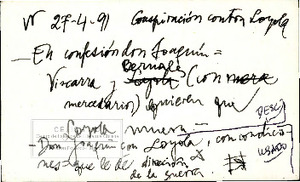 Nº 27-4-91 Conspiración contra Loyola
– En confesión don Joaquín =
Bernal
Viscarra y (con
mercenarios) quieren que
Loyola muera –
– Don Joaquín con Loyola, con condicio
nes que le de dirección
de la guerra.
DESC
USADO